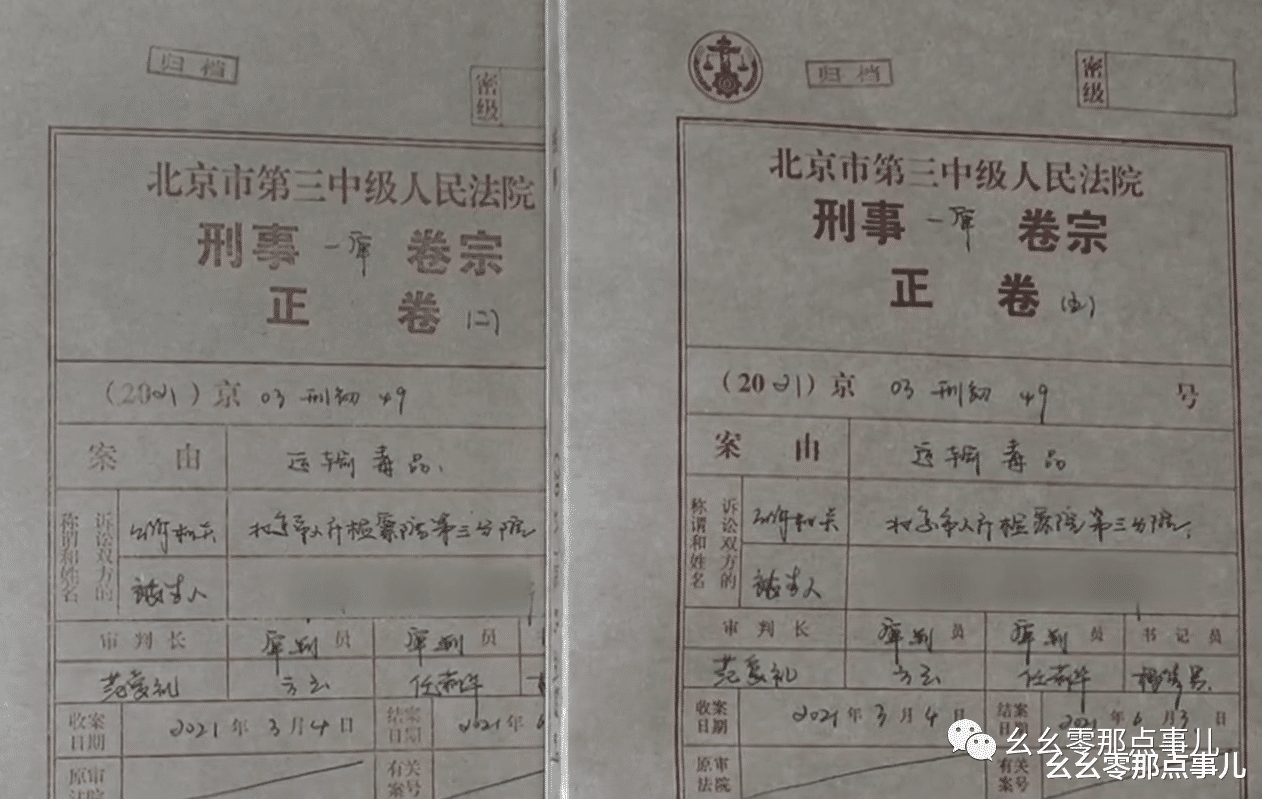 归档
密级
北京市第三中级人民法院
刑事 一审 卷宗
正 卷 (二)
(2021) 京 03 刑初 49
案 由 运输毒品
诉讼双方的称谓和姓名
公诉机关 北京市人民检察院第三分院
被告人
审 判 长 审判 员 审判 员
方云
收案日期 2021 年 3 月 4 日 结案日期 2021 年 6
原审法院 有关案号
归档
密级
北京市第三中级人民法院
刑事 一审 卷宗
正 卷 (五)
(2021) 京 03 刑初 49 号
案 由 运输毒品
诉讼双方的称谓和姓名
公诉机关 北京市人民检察院第三分院
被告人
审 判 长 审判 员 审判 员 书 记 员
方云
收案日期 2021 年 3 月 4 日 结案日期 2021 年 6 月 3 日
原审法院 有关案号
幺幺零那点事儿
幺幺零那点事儿